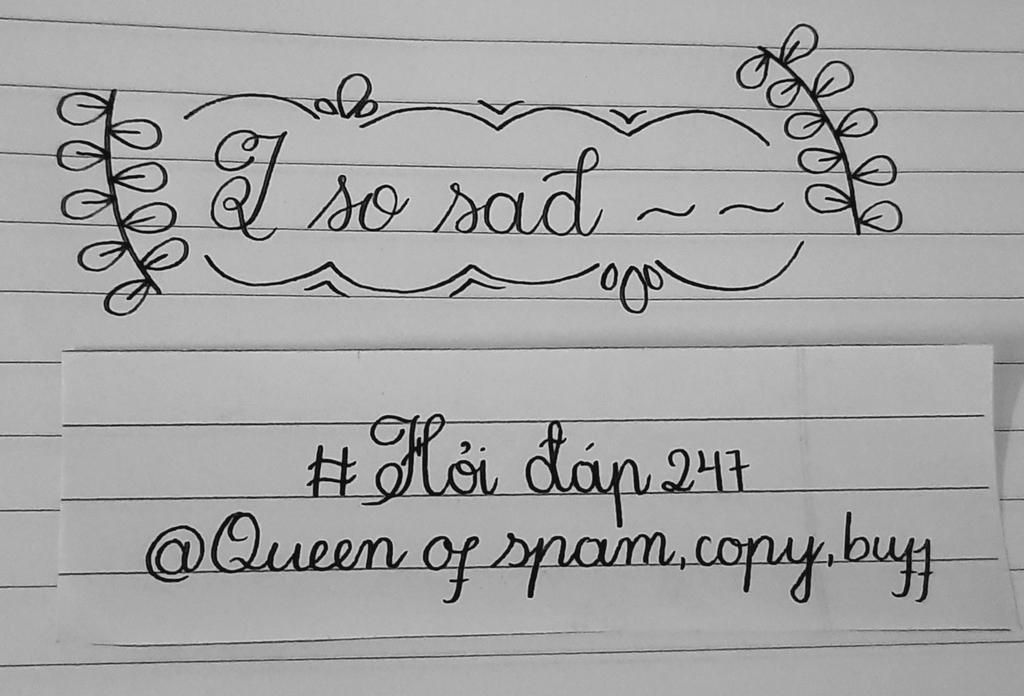 I so sad ~ ~
# Hỏi đáp 247
@Queen of spam, copy, buff